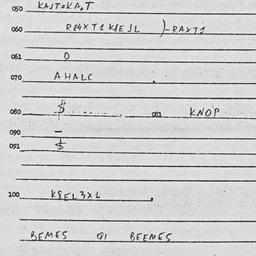 050 KAJT=KA,T
060 RE4XT1 K8EJL )-RAXT1
061 O
070 AHALC .
080 $ ........ 081 KNOP
090 -
091 $
100 K8EL3XL .
BEMES GI BEEMES